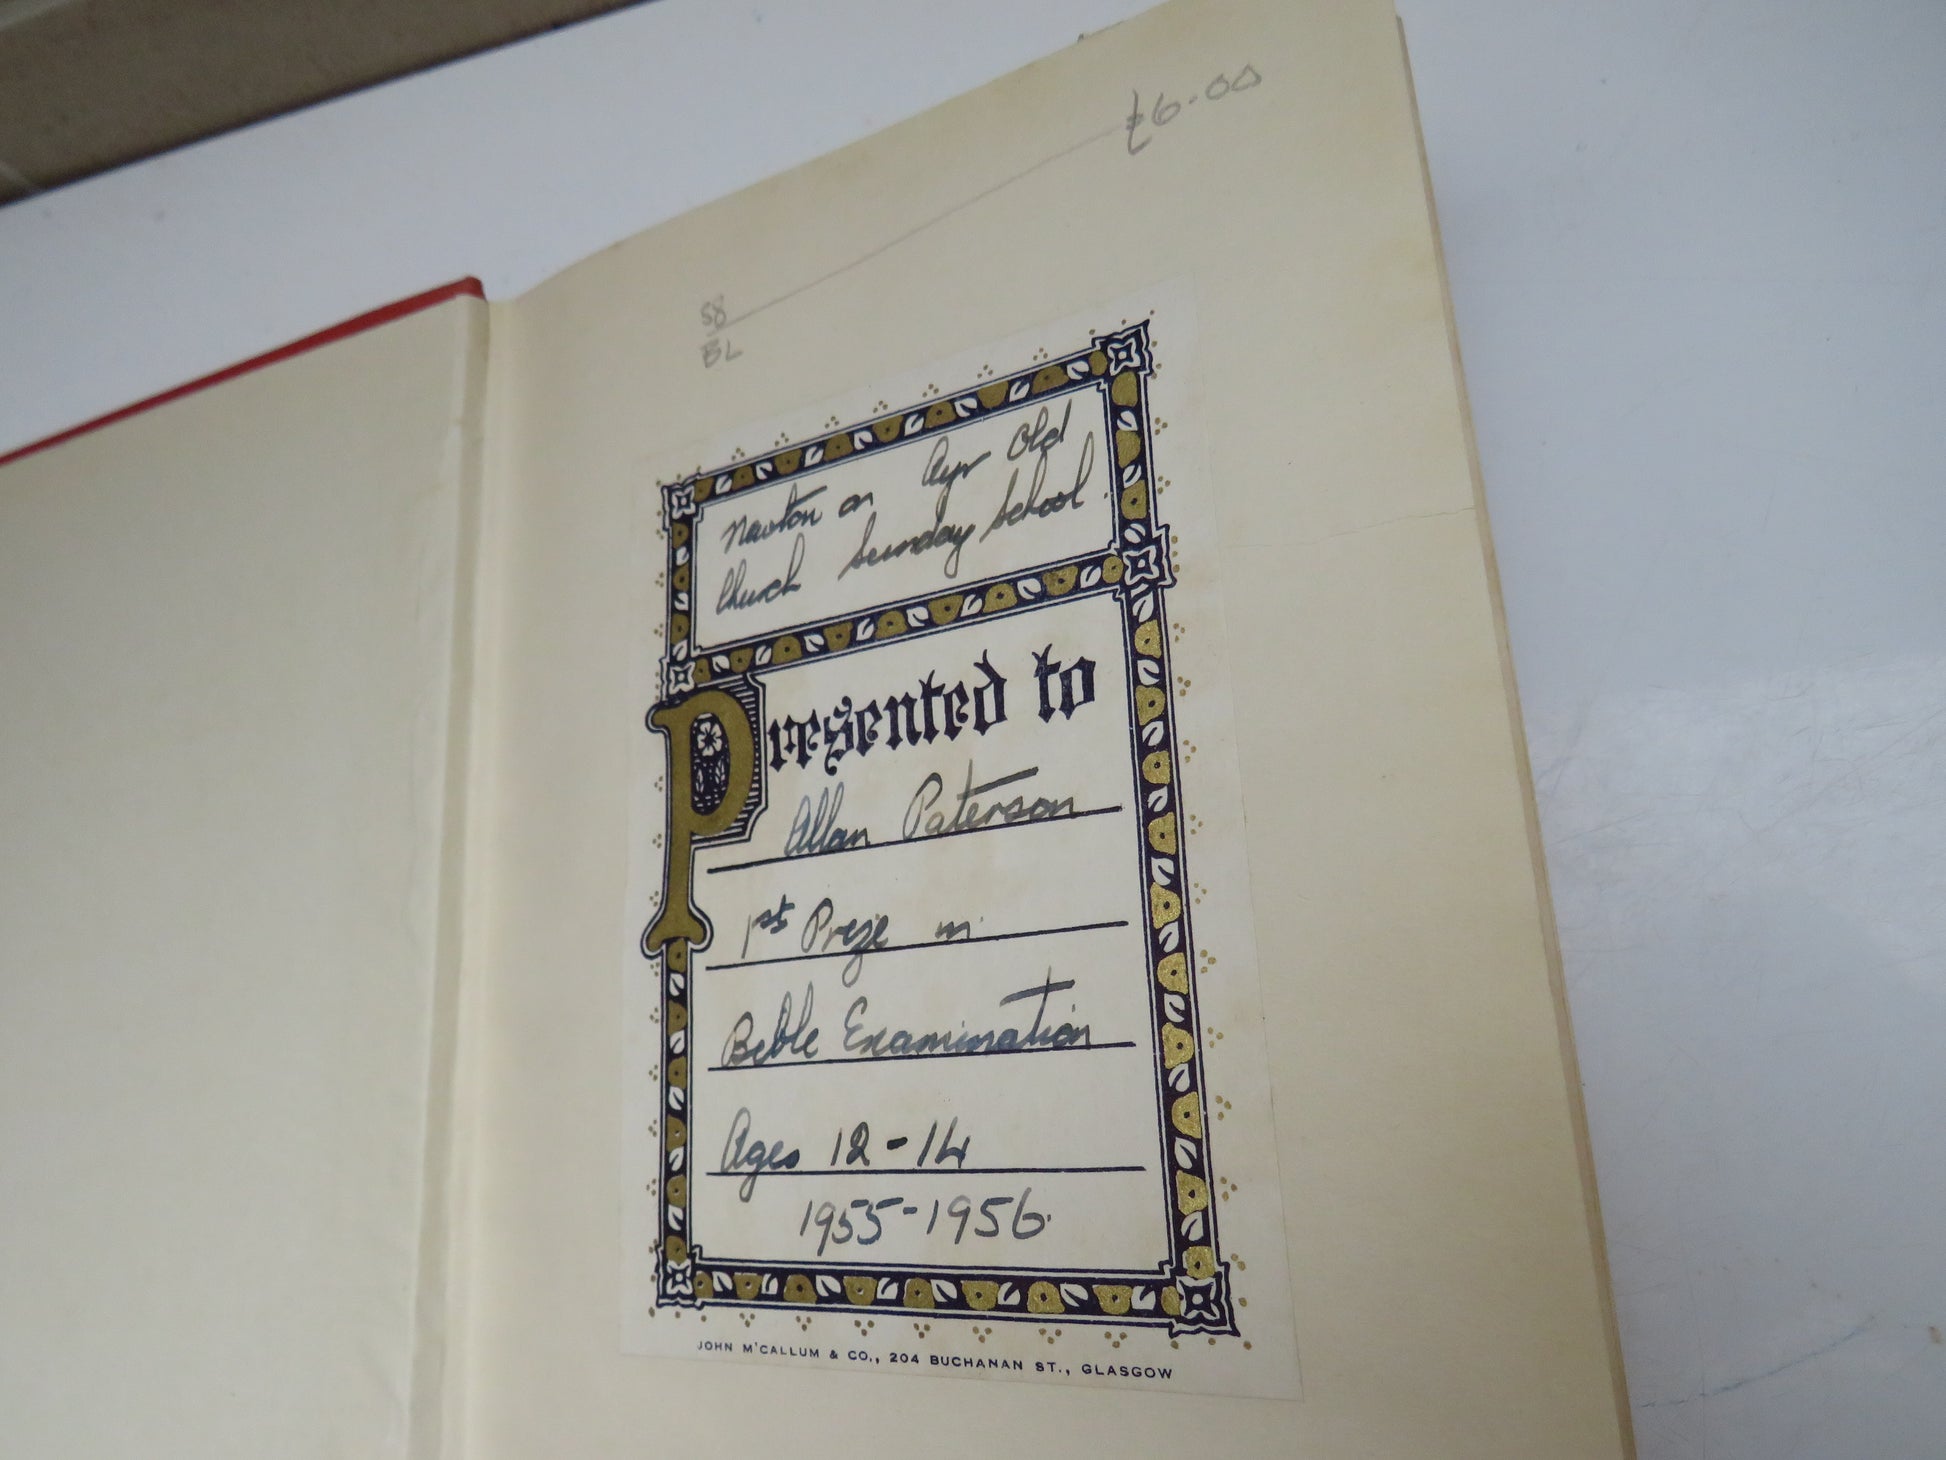 £6-00
58
BL
Newton on Ayr Old
Church Sunday School
Presented to
Allan Paterson
1st Prize in
Bible Examination
Ages 12-14
1955-1956.
JOHN M'CALLUM & CO., 204 BUCHANAN ST., GLASGOW